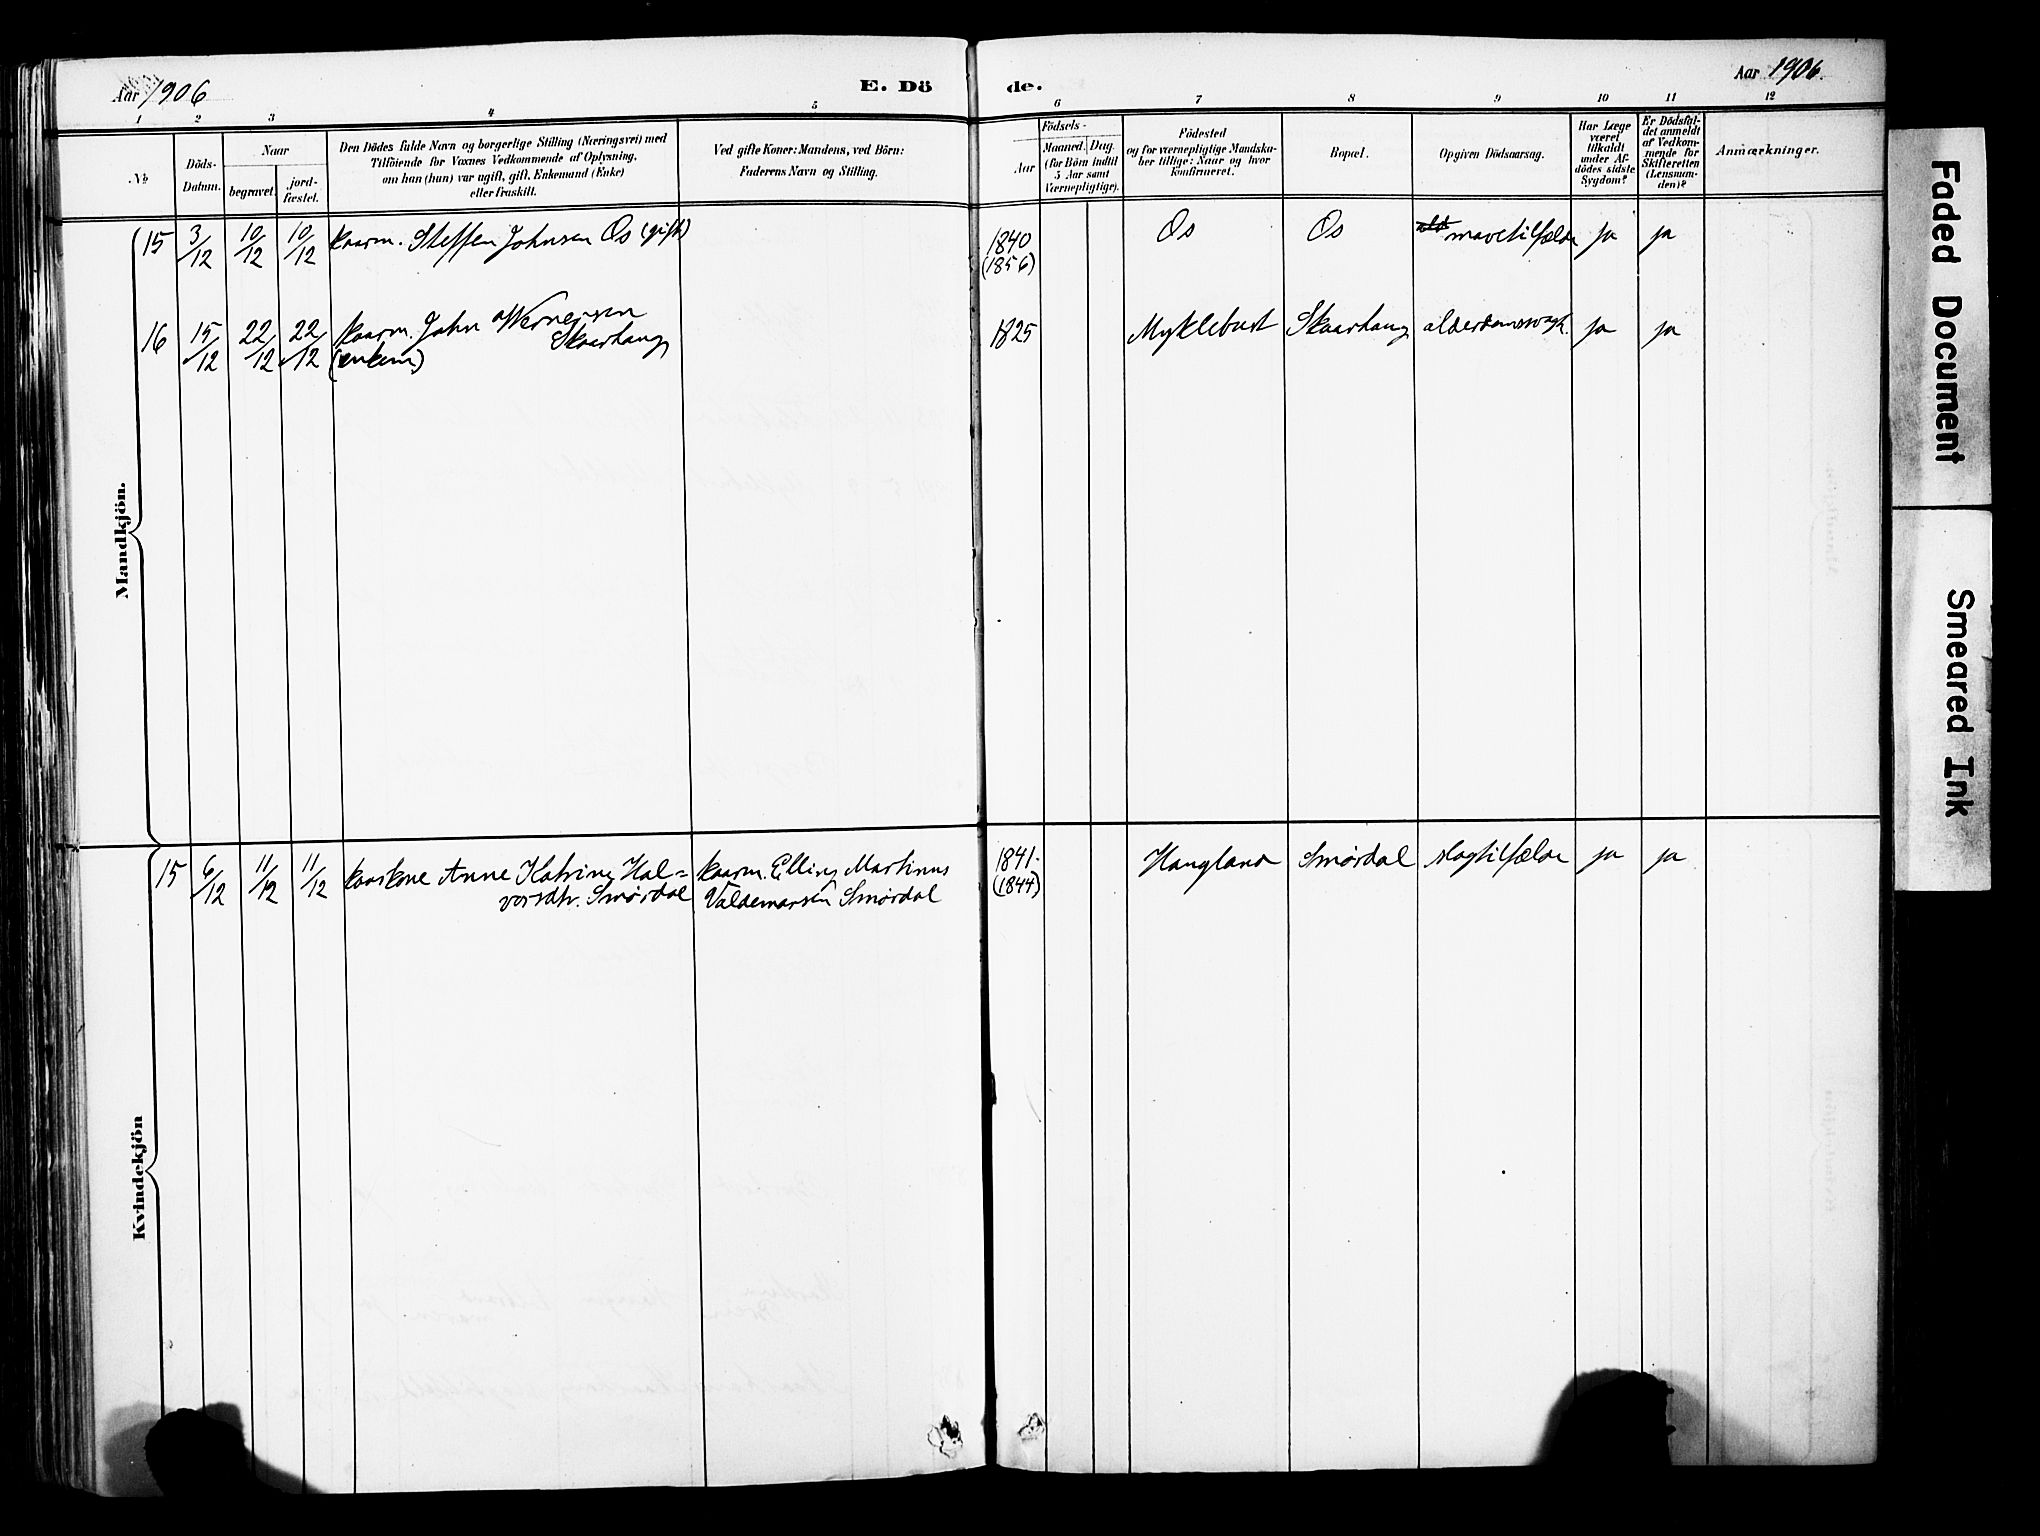 Aar 1906
E. Dö
de.
Aar 1906.
1 2 3 4 5 6 7 8 9 10 11 12
No
Döds-
Datum.
Naar
begravet.
jord-
fæstet.
Den Dödes fulde Navn og borgerlige Stilling (Næringsvei) med
Tilföiende for Voxnes Vedkommende af Oplysning,
om han (hun) var ugift, gift, Enkemand (Enke)
eller fraskilt.
Ved gifte Koner: Mandens, ved Börn:
Faderens Navn og Stilling.
Födsels-
Aar
Maaned. Dag.
(for Börn indtil
5 Aar samt
Værnepligtige).
Födested
og for værnepligtige Mandska-
ber tillige: Naar og hvor
konfirmeret.
Bopæl.
Opgiven Dödsaarsag.
Har Læge
været
tilkaldt
under Af-
dödes sidste
Sygdom?
Er Dödsfal-
det anmeldt
af Vedkom-
mende for
Skifteretten
(Lensman-
den)?
Anmærkninger.
Mandkjön.
15 3/12 10/12 10/12 kaarm. Steffen Johnsen Os (gift) 1840 Os Os mavetilfælde ja ja
(1856)
16 15/12 22/12 22/12 kaarm. John Wernersen 1825 Myklebust Skaarhaug alderdomssvagh. ja ja
Skaarhaug
(enkem)
Kvindekjön
15 6/12 11/12 11/12 kaarkone Anne Katrine Hal= kaarm. Elling Martinus 1841. Haugland Smørdal slagtilfælde ja ja
vorsdtr. Smørdal Valdemarsen Smørdal (1844)
Faded Document
Smeared Ink